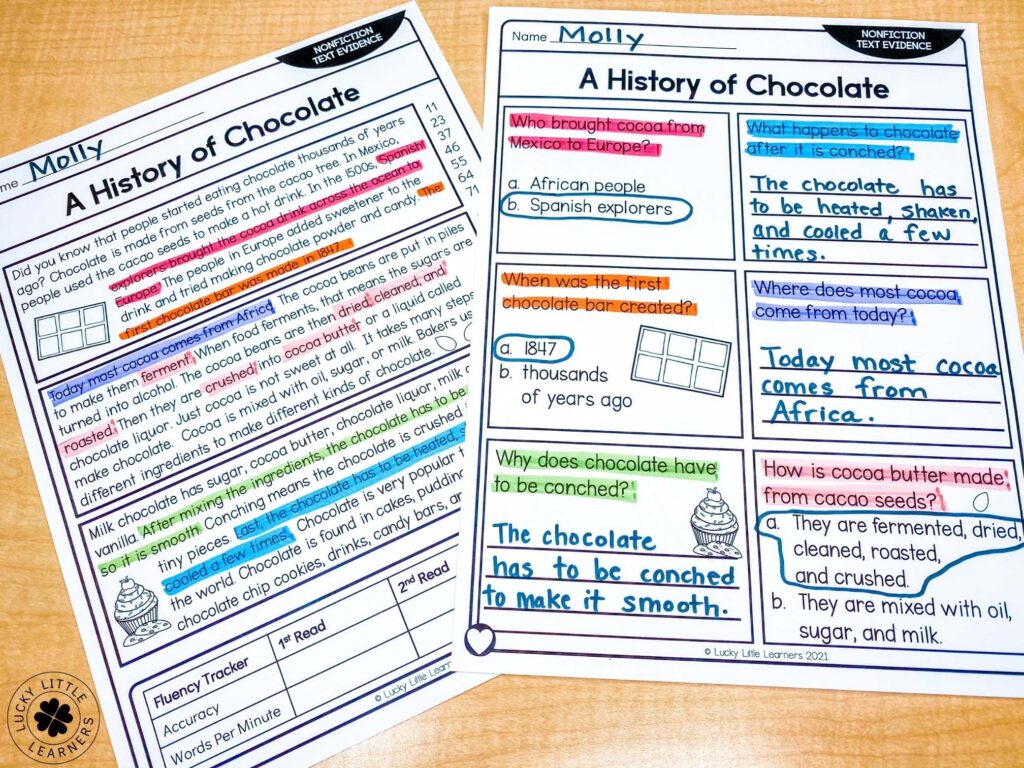 NONFICTION
TEXT EVIDENCE
Name Molly
A History of Chocolate
Did you know that people started eating chocolate thousands of years 11
ago? Chocolate is made from seeds from the cacao tree. In Mexico, 23
people used the cacao seeds to make a hot drink. In the 1500s, Spanish 37
explorers brought the cocoa drink across the ocean to 46
Europe. The people in Europe added sweetener to the 55
drink and tried making chocolate powder and candy. The 64
first chocolate bar was made in 1847. 71
Today most cocoa comes from Africa. The cocoa beans are put in piles
to make them ferment. When food ferments, that means the sugars are
turned into alcohol. The cocoa beans are then dried, cleaned, and
roasted. Then they are crushed into cocoa butter or a liquid called
chocolate liquor. Just cocoa is not sweet at all. It takes many steps
make chocolate. Cocoa is mixed with oil, sugar, or milk. Bakers us
different ingredients to make different kinds of chocolate.
Milk chocolate has sugar, cocoa butter, chocolate liquor, milk
vanilla. After mixing the ingredients, the chocolate has to be
so it is smooth. Conching means the chocolate is crushed
tiny pieces. Last, the chocolate has to be heated,
cooled a few times. Chocolate is very popular
the world. Chocolate is found in cakes, pudding
chocolate chip cookies, drinks, candy bars,
Fluency Tracker 1st Read 2nd Read
Accuracy
Words Per Minute
© Lucky Little Learners
LUCKY LITTLE
LEARNERS
NONFICTION
TEXT EVIDENCE
Name Molly
A History of Chocolate
Who brought cocoa from
Mexico to Europe?
a. African people
b. Spanish explorers
What happens to chocolate
after it is conched?
The chocolate has
to be heated, shaken,
and cooled a few
times.
When was the first
chocolate bar created?
a. 1847
b. thousands
of years ago
Where does most cocoa
come from today?
Today most cocoa
comes from
Africa.
Why does chocolate have
to be conched?
The chocolate
has to be conched
to make it smooth.
How is cocoa butter made
from cacao seeds?
a. They are fermented, dried,
cleaned, roasted,
and crushed.
b. They are mixed with oil,
sugar, and milk.
© Lucky Little Learners 2021